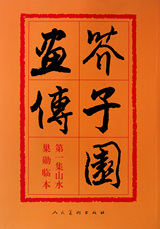 芥子園
畫傳
第一集山水
巢勋临本
人民美术出版社